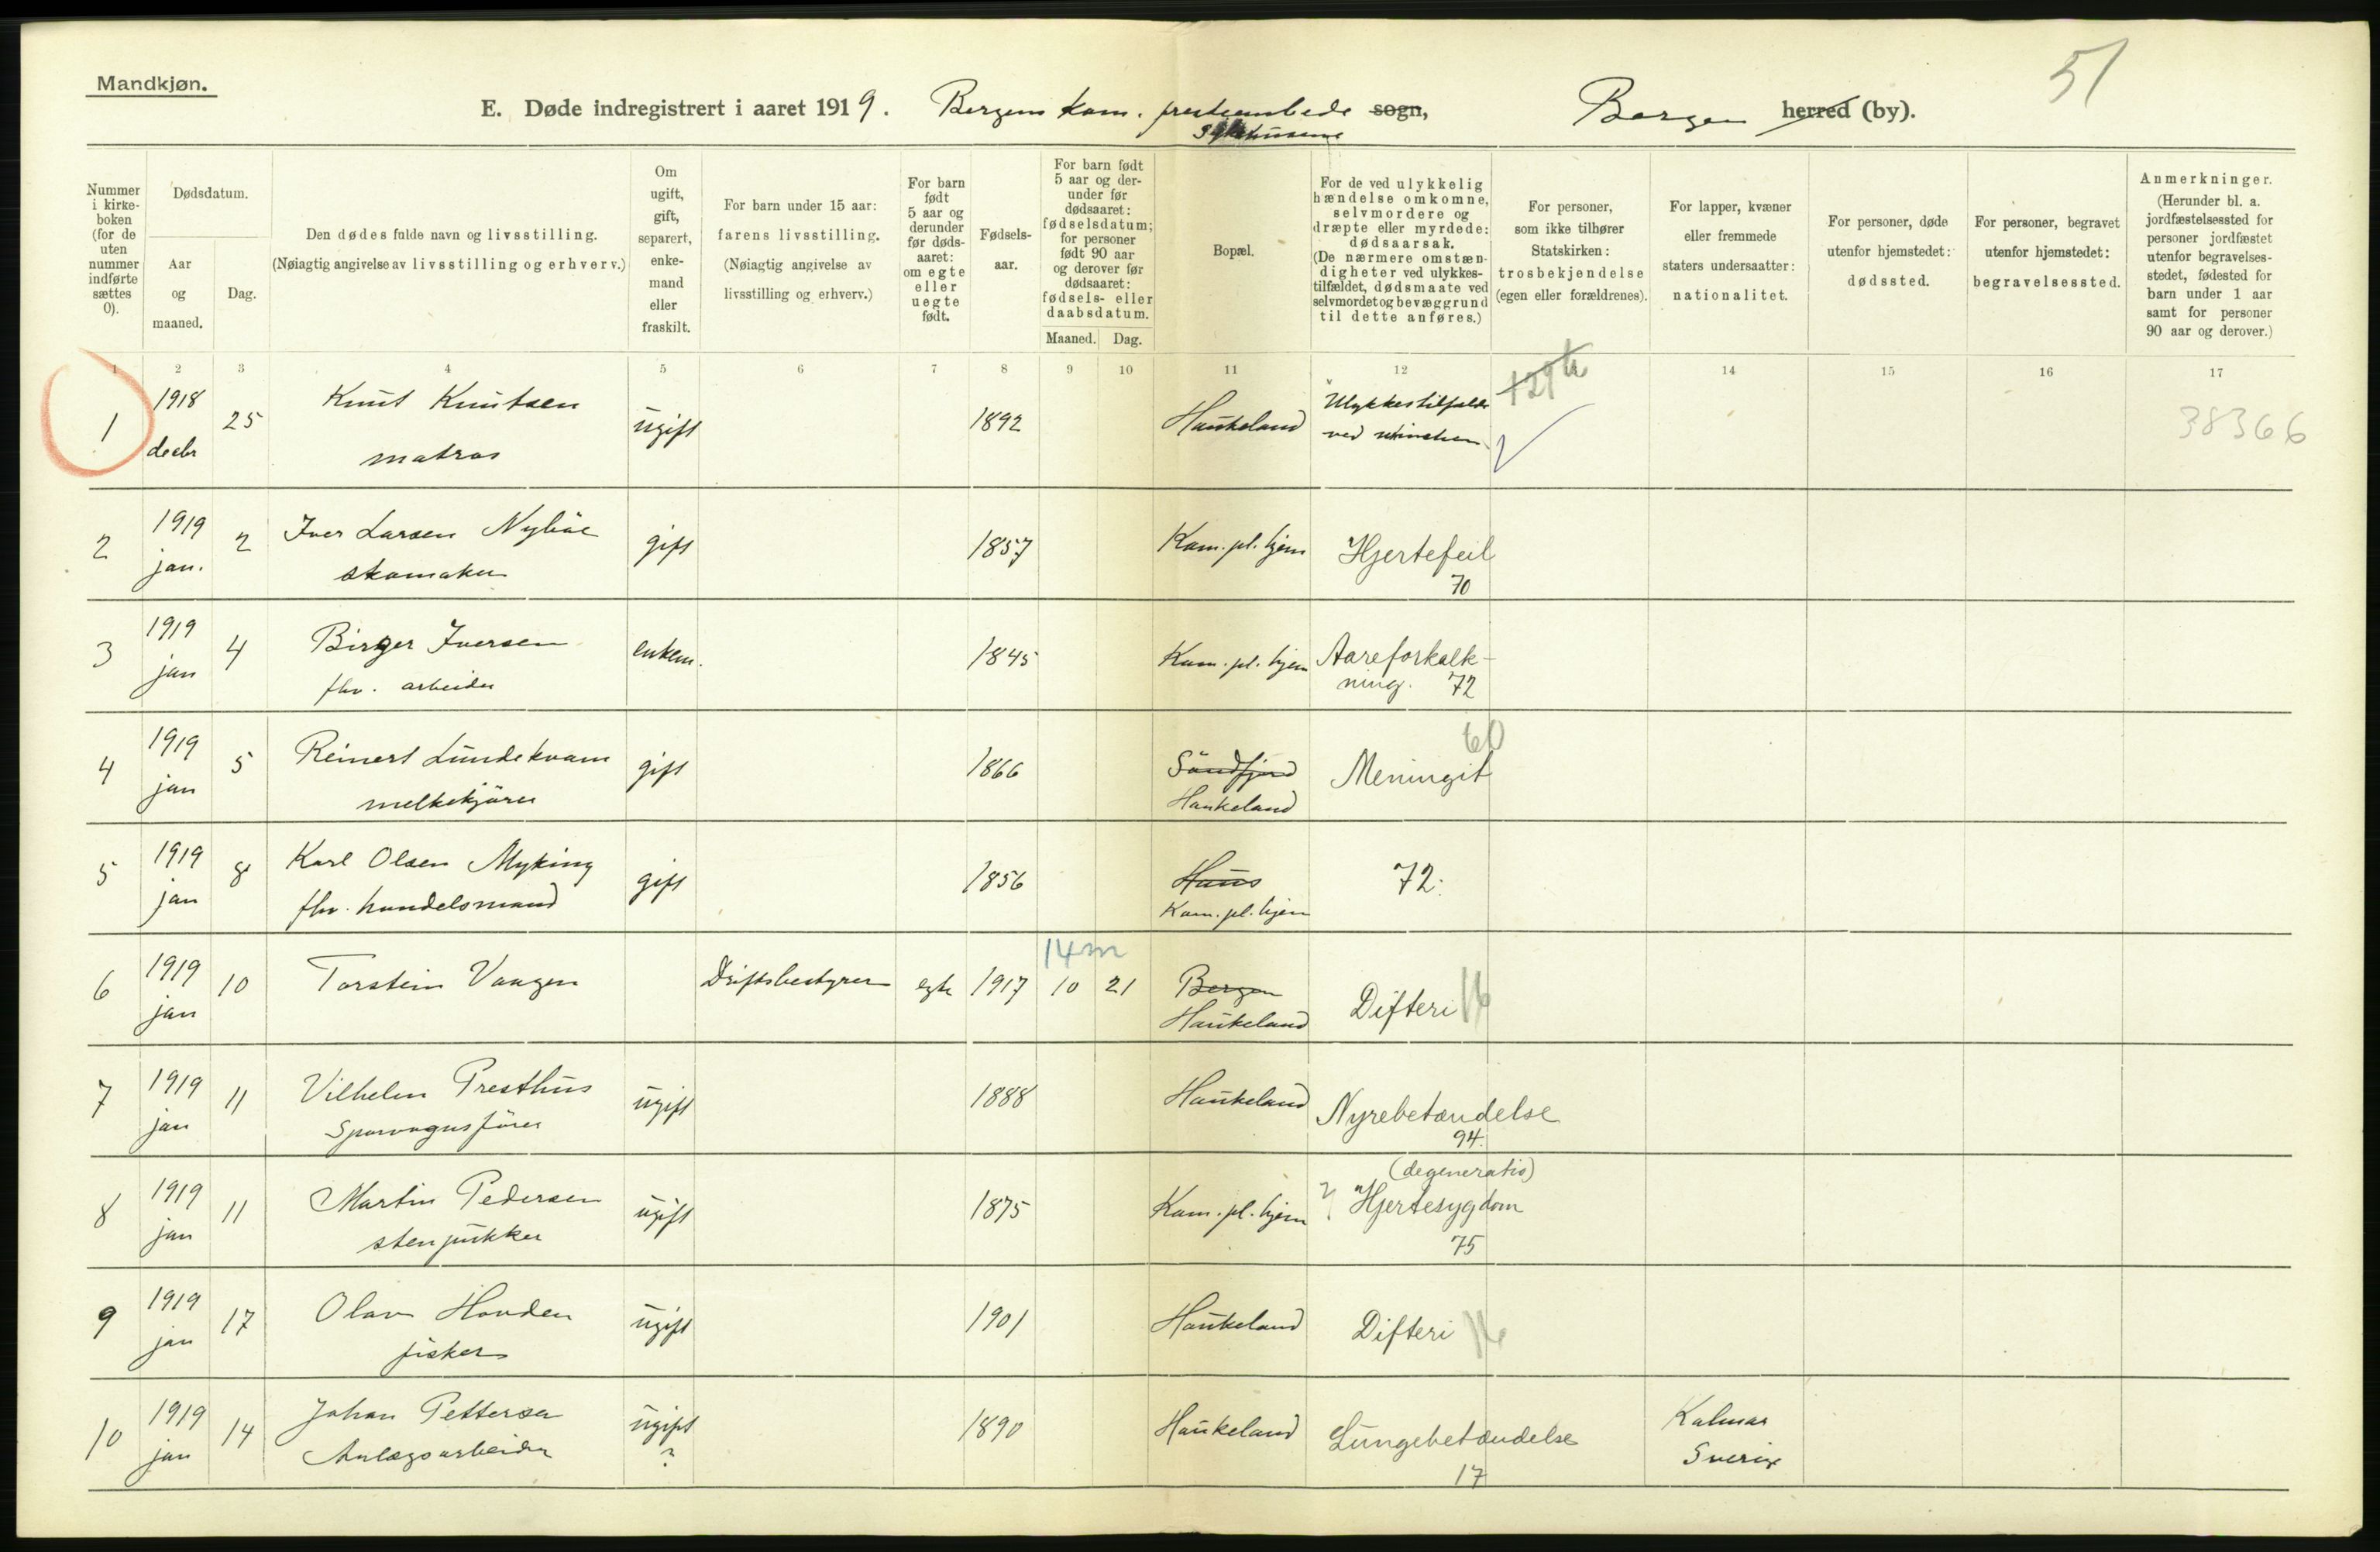 Mandkjøn.
51
E. Døde indregistrert i aaret 1919. Bergens kom. presteembede sogn, Bergen herred (by).
Sykehusene
Nummer i kirkeboken (for de uten nummer indførte sættes 0).
Dødsdatum.
Aar og maaned.
Dag.
Den dødes fulde navn og livsstilling.
(Nøiagtig angivelse av livsstilling og erhverv.)
Om ugift, gift, separert, enkemand eller fraskilt.
For barn under 15 aar:
farens livsstilling.
(Nøiagtig angivelse av
livsstilling og erhverv.)
For barn født 5 aar og derunder før dødsaaret: om egte eller uegte født.
Fødselsaar.
For barn født 5 aar og derunder før dødsaaret: fødselsdatum; for personer født 90 aar og derover før dødsaaret: fødsels- eller daabsdatum.
Maaned. Dag.
Bopæl.
For de ved ulykkelig hændelse omkomne, selvmordere og dræpte eller myrdede: dødsaarsak. (De nærmere omstændigheter ved ulykkestilfældet, dødsmaate ved selvmordet og bevæggrund til dette anføres.)
For personer, som ikke tilhører Statskirken: trosbekjendelse (egen eller forældrenes).
For lapper, kvæner eller fremmede staters undersaatter: nationalitet.
For personer, døde utenfor hjemstedet: dødssted.
For personer, begravet utenfor hjemstedet: begravelsessted.
Anmerkninger.
(Herunder bl. a. jordfæstelsessted for personer jordfæstet utenfor begravelsesstedet, fødested for barn under 1 aar samt for personer 90 aar og derover.)
1 2 3 4 5 6 7 8 9 10 11 12 14 15 16 17
1 1918 decbr 25 Knut Knutsen ugift 1892 Haukeland Ulykkestilfælde 38366
matros ved
2 1919 jan. 2 Iver Larsen Nybøe gift 1857 Kom. pl. hjem Hjertefeil
skomaker 70
3 1919 jan 4 Birger Iversen enkem. 1845 Kom. pl. hjem Aareforkalk-
fhv. arbeider ning. 72
60
4 1919 jan 5 Reinert Lundekvam gift 1866 Søndfjord Meningit
melkekjører Haukeland
5 1919 jan 8 Karl Olsen Myking gift 1856 Haus 72.
fhv. handelsmand Kom. pl. hjem
14m
6 1919 jan 10 Torstein Vaagen Driftsbestyrer egte 1917 10 21 Bergen
Haukeland Difteri
7 1919 jan 11 Vilhelm Presthus ugift 1888 Haukeland Nyrebetændelse
Sporvognsfører 94.
(degeneratio)
8 1919 jan 11 Martin Pedersen ugift 1875 Kom. pl. hjem ? Hjertesygdom
stenpukker 75
9 1919 jan 17 Olav Hovden ugift 1901 Haukeland Difteri
fisker
10 1919 jan 14 Johan Petterson ugift 1890 Haukeland Lungebetændelse Kalmar
Anlægsarbeider ? 17 Sverige